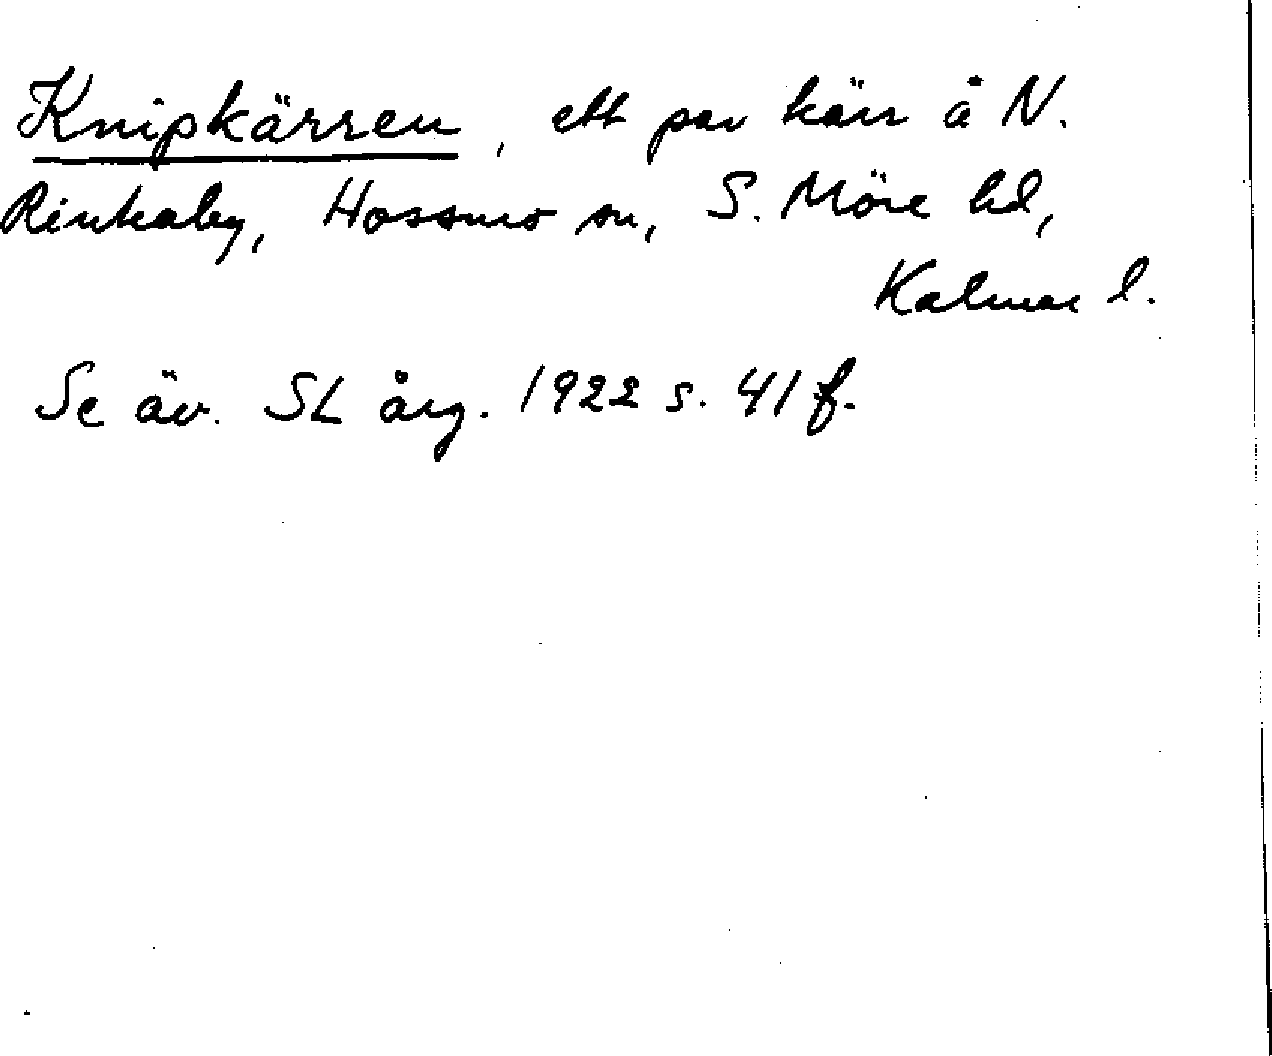 Knipkärren, ett par kärr å N.
Rinkaby, Hossmo sn, S. Möre hd,
Kalmar l.
Se äv. SL årg. 1922 s. 41 f.